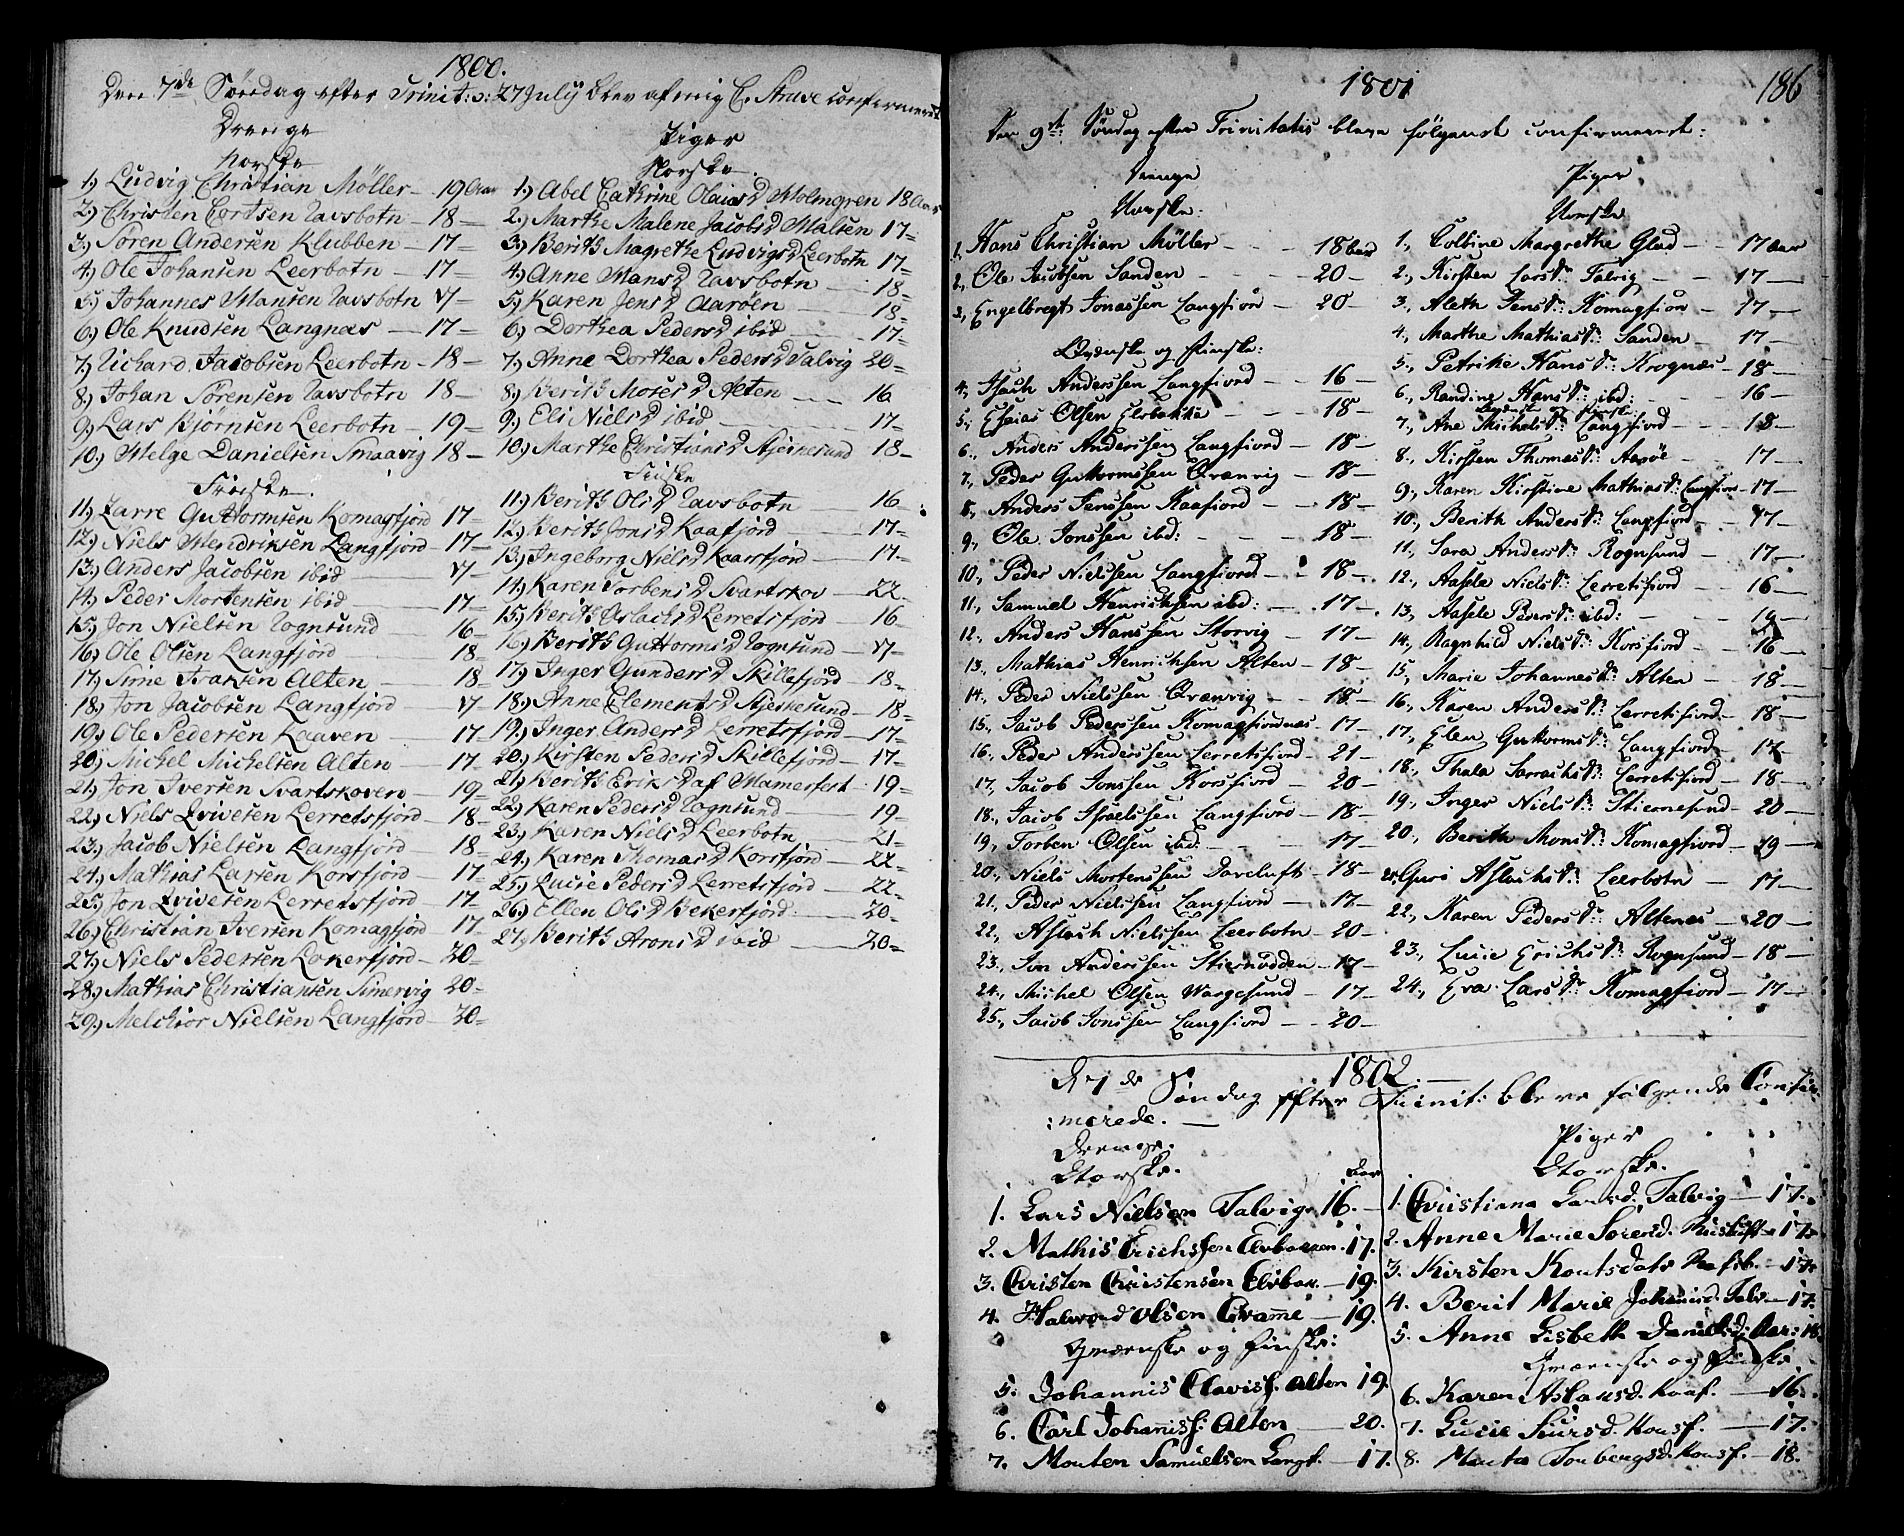 1800.
Den 7de Søndag efter Trinit: o: 27 July blev af mig C. Strue confirmeret
Drenge
Norske
1) Ludvig Christian Möller - 19 Aar
2) Christen Cortsen Ravsbotn - 18 -
3) Sören Andersen Klubben - 17 -
4) Ole Johansen Leerbotn - 17 -
5) Johannes Hansen Ravsbotn 17 -
6) Ole Knudsen Langnæs - 17 -
7) Richard Jacobsen Leerbotn - 18 -
8) Johan Sörensen Ravsbotn 18 -
9) Lars Björnsen Leerbotn - 19 -
10) Helge Danielsen Smaavig 18 -
Finske.
11) Zarre Guttormsen Komagfjord 17 -
12) Niels Hendriksen Langfjord - 17 -
13) Anders Jacobsen ibid - 17 -
14) Peder Mortensen ibid - 17 -
15) Jon Nielsen Rognsund 16 -
16) Ole Olsen Langfjord - 18 -
17) Sime Ivarsen Alten - 18 -
18) Jon Jacobsen Langfjord - 17 -
19) Ole Pedersen Kaaven - 17 -
20) Michel Michelsen Alten - 17 -
21) Jon Iversen Svartskoven - 19 -
22) Niels Qvivesen Lerretsfjord - 18 -
23) Jacob Nielsen Langfjord 18 -
24) Mathias Larsen Korsfjord - 17 -
25) Jon Qvivesen Lerretsfjord - 17 -
26) Christian Iversen Komagfjord 17 -
27) Niels Pedersen Lokerfjord - 20 -
28) Mathias Christiansen Simervig 20 -
29) Melchior Nielsen Langfjord - 20 -
Piger
Norske.
1) Abel Cathrine Olaisd Holmgren 18 Aar
2) Marthe Malene Jacobsd Halsen 17 -
3) Berith Magrethe Ludvigsd Leerbotn 17 -
4) Anne Hansd Ravsbotn - 18 -
5) Karen Jensd Aaröen - 18 -
6) Dorthea Pedersd ibid - 17 -
7) Anne Dorthea Pedersd Talvig 20 -
8) Berith Mosesd Alten - 16
9) Eli Nielsd ibid - 17 -
10) Marthe Christiansd Stjernesund 18 -
Finske
11) Berith Olsd Ravsbotn 16 -
12) Berith Jonsd Kaafjord - 17 -
13) Ingeborg Nielsd Kaarsfjord - 17 -
14) Karen Torbensd Svartskov - 22
15) Berith Aslachsd Lerretsfjord 16 -
16) Berith Guttormsd Rognsund - 17 -
17) Inger Gundersd Skillefjord - 18 -
18) Anne Clementsd Stjernesund - 18 -
19) Inger Andersd Lerretsfjord - 17 -
20) Kirsten Pedersd Skillefjord - 17 -
21) Berith Eriksd af Hamerfest 19 -
22) Karen Pedersd Rognsund - 19 -
23) Karen Nielsd Leerbotn 21 -
24) Karen Thomasd Korsfjord - 22 -
25) Lucie Pedersd Lerretsfjord - 22 -
26) Ellen Olsd Bekerfjord 20 -
27) Berith Aronsd ibid - 20 -
1801
186
Den 9de: Søndag efter Trinitatis bleve følgende confirmeret:
Drenge
Norske:
1, Hans Christian Møller - - 18 aar
2, Ole Jacobsen Sanden - - - 20 -
3, Engelbregt Jonassen Langfiord - 20 -
Qvænske og Finske:
4, Isach Anderssen Langfiord - - 16 -
5, Esaias Olsen Elvbakke - - 18 -
6, Anders Anderssen Langfiord - 18 -
7, Peder Guttormssen Qvænvig - 18 -
8, Anders Jenssen Kaafiord - 18 -
9, Ole Jonssen ibd: - - - 18 -
10, Peder Nielssen Langfiord - - 18 -
11, Samuel Henrichsen ibd: - 17 -
12, Anders Hanssen Storvig - 17 -
13, Mathias Henrichsen Alten - 18 -
14, Peder Nielssen Qvænvig - 18 -
15, Jacob Pederssen Komagfiordnæs - 17 -
16, Peder Anderssen Lerretsfiord - 21 -
17, Jacob Jonssen Korsfiord - 20 -
18, Jacob Israelssen Langfiord - 18 -
19, Torben Olsen ibd: - - 17 -
20, Niels Mortenssen Daveluft - 18 -
21, Peder Nielssen Langfiord - 17 -
22, Aslach Nielssen Leerbotn - 20 -
23, Jon Anderssen Stiernodden - 17 -
24, Michel Olsen Wargesund - 17 -
25, Jacob Jonssen Langfiord - - 20 -
Piger
Norske
1, Colbine Margrethe Glad - - 17 aar
2, Kirsten Larsdr: Talvig - - 17 -
3, Aleth Jensdr: Komagfiord - 17 -
4, Marthe Mathiasdr: Sanden - 17 -
5, Petrike Hansdr: Krognæs - 18 -
6, Randine Hansdr: ibd: - - 16 -
Qvænske og Finske
7, Ane Michelsdr: Langfiord - - 18 -
8, Kirsten Thomasdr: Aarøe - 17 -
9, Karen Kirstine Mathiasdr: Langfior - 17 -
10, Berith Andersdr: Langfiord - 17 -
11, Sara Andersdr: Rognsund - 17 -
12, Aasele Nielsdr: Lerretsfiord - 16 -
13, Aasele Pedersdr: ibd: - - 19 -
14, Ragnhild Nielsdr: Korsfiord - 16 -
15, Marie Johannesdr: Alten - 18 -
16, Karen Andersdr: Lerretsfiord - 18 -
17, Elen Guttormsdr: Langfiord - 17
18, Thala Sarrachsdr: Lerretsfiord - 18 -
19, Inger Nielsdr: Stiernesund - 20 -
20, Berith Monsdr: Komagfiord - 19 -
21, Guri Aslachsdr: Leerbotn - 17 -
22, Karen Pedersdr: Altenes - 20 -
23, Lucie Erichsdr: Rognsund - 18 -
24, Eva Larsdr: Komagfiord - 17 -
1802. -
D 7de Søndag efter Trinit: bleve følgende Confir=
:merede. -
Drenge.
Norske. aar
1. Lars Nielsen Talvig. 16. -
2. Mathis Erichsen Elvbakken. 17.
3. Christen Christensen Elvbak. - 19.
4. Halvord Olsen Crame - 19.
Qvænske og Finske:
5. Johannis Clavisf. Alten 19.
6. Carl Johanisf: Alten - 20.
7. Monten Samuelsen Langf. - 17.
Piger
Norske.
1. Christiana Larsd. Talvig - 17.
2. Anne Marie Sörensd. - 17.
3. Kirsten Knutsdatr Rafsb. - 17.
4. Berit Marie Johanisd. Talv - 17.
5. Anne Lisbeth Danielsd: Aar: 18.
Qvænske og Finske
6. Karen Aslansd. Kaaf. - 16.
7. Lucie Siursd. Konsf. - 17.
8. Marta Tonbergsd. Konsf. - 18.